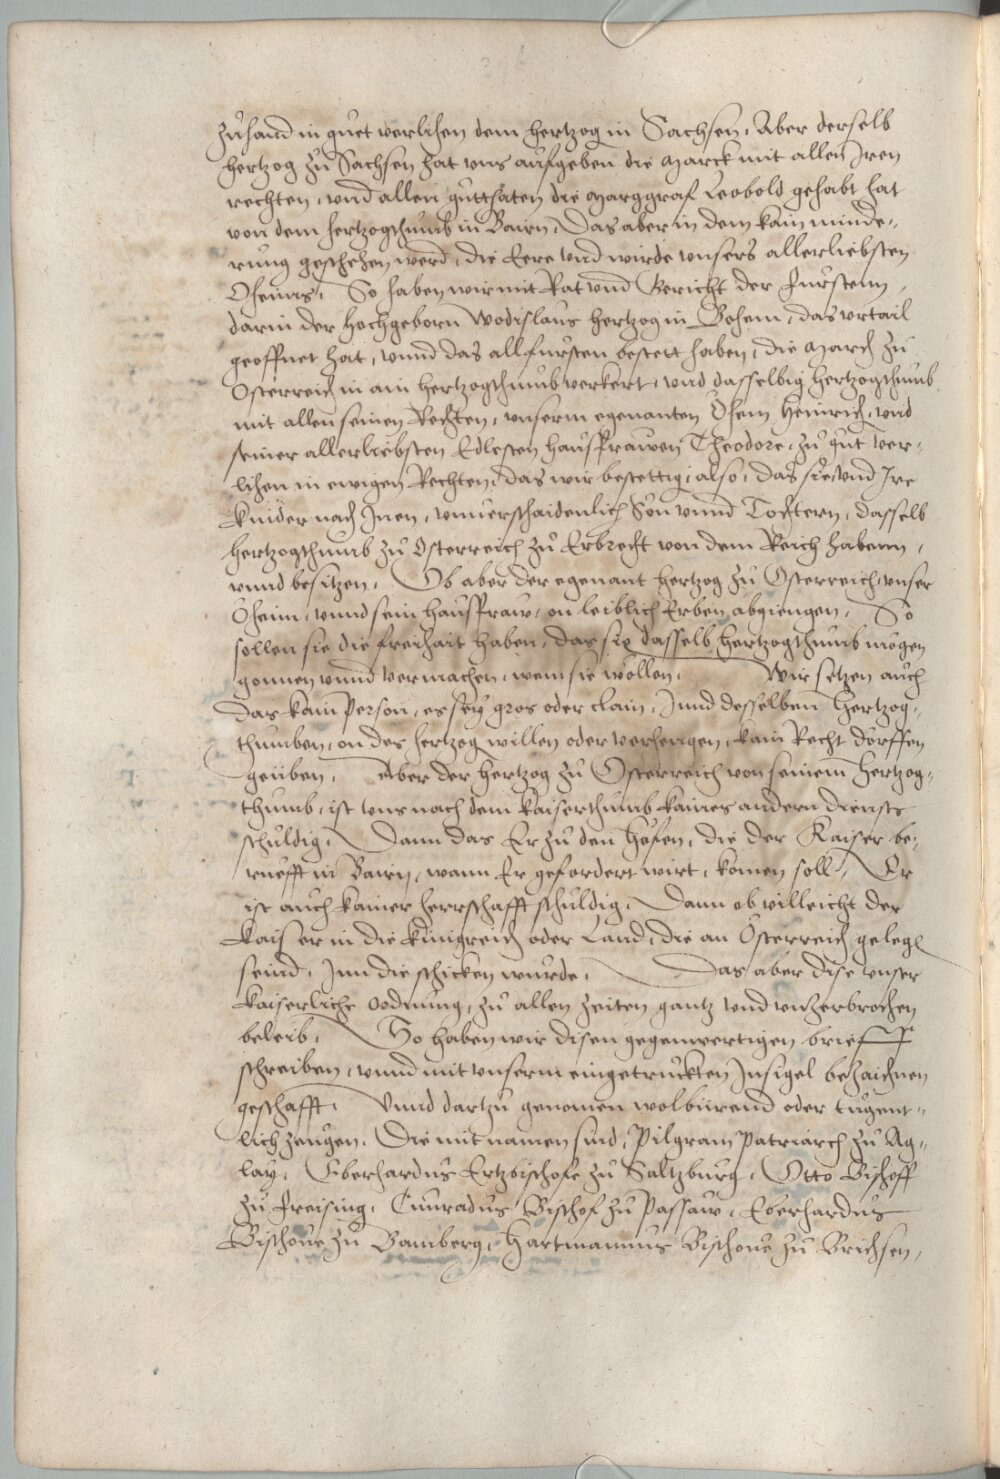 zůhand in guet verlihen dem hertzog in Sachsen. Aber derselb
hertzog zů Sachsen hat vns aufgeben die Marck mit allen Iren
rechten, vnd allen gutthaten die Marggraf Leobold gehabt hat
von dem hertzogthumb in Bairn, Das aber in dem kain minde-
rung geschehen werd, die Eere vnd wirde vnsers allerliebsten
Ohems, So haben wir mit Rat vnd Gericht der fursten,
darin der Hochgeborn Wodislaus hertzog in Bohem, das vrtail
geoffnet hat, vnnd das all fursten bestett haben, die March zů
Osterreich in ain hertzogthumb verkert, vnd dasselbig hertzogthumb
mit allen seinen Rechten, vnserm egenanten Ohem Heinrich, vnd
seiner allerliebsten Edlesten hausfrawen Theodore, zů gut ver-
lihen in ewigen Rechten, das wir bestettig, also, das sie vnd Ire
kinder nach Inen, vnuerschaidenlich Sön vnnd Tochtern, dasselb
hertzogthumb zů Osterreich zů Erbrecht von dem Reich habenn,
vnnd besitzen. Ob aber der egenant hertzog zů Osterreich vnser
Oheim, vnnd sein hausfraw, on leiblich Erben abgiengen, So
sollen sie die freihait haben, das sie dasselb hertzogthumb mögen
gonnen vnnd vermachen, wem sie wöllen. Wir setzen auch
das kain person, es sey gros oder clain, Innd desselben hertzog-
thumben, on des hertzog willen oder verhengen, kain Recht dörffen
geüben. Aber der hertzog zů Osterreich von seinem hertzog-
thumb, ist vns nach dem kaiserthumb kaines andern diensts
schuldig, Dann das Er zů den höfen, die der Kaiser be-
rüefft in Bairn, wann Er gefordert wirt, komen soll, Er
ist auch kainer herrschafft schuldig, Dann ob villeicht der
Kaiser in die künigreich oder Land, die an Osterreich gelegen
seind, Inn die schicken wurde. Das aber dise vnser
kaiserliche Ordnung, zů allen zeiten gantz vnd vnzerbrochen
beleib, So haben wir disen gegenwertigen brieff
schreiben, vnnd mit vnserm eingetruckten Insigel bezaichnen
geschafft. Vnnd dartzů genomen wolbürend oder tugent-
lich zeugen. Die mit namen sind, Pilgram Patriarch zů Ag-
lay, Eberhardus Ertzbischofe zů Saltzburg, Otto Bischoff
zů Freising, Cunradus Bischof zů Passaw, Eberhardus
Bischoue zů Bamberg, Hartmannus Bischoue zů Brichsen,